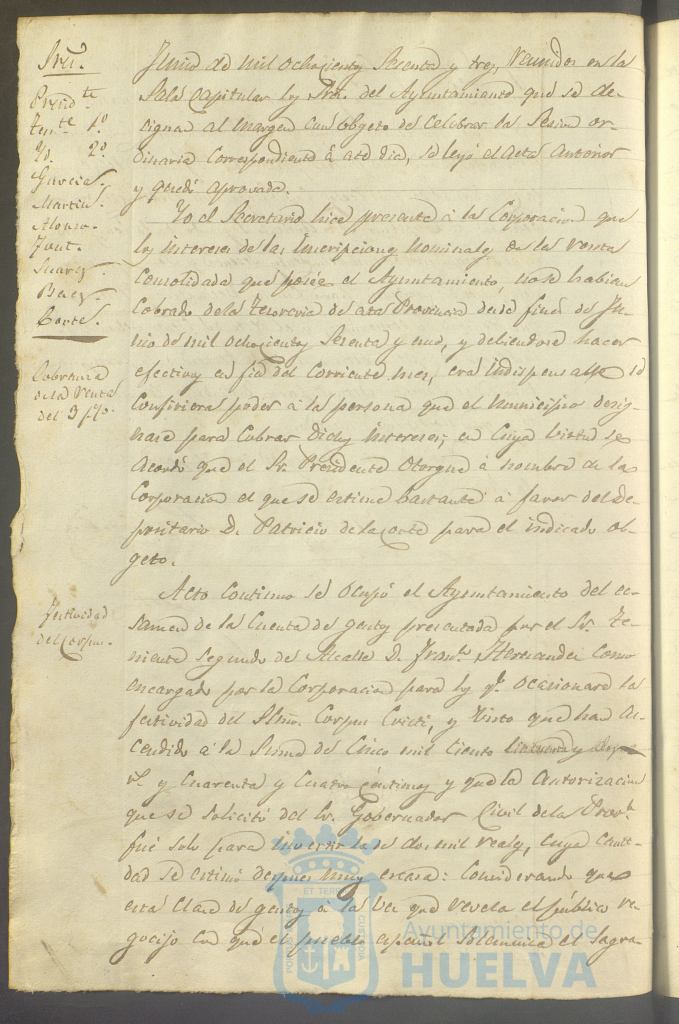 Sres.
Presid.te
Ten.te 1.º
Yd. 2.º
Garcia.
Martin.
Alonso.
Font.
Suarez.
Baez.
Corte.
Cobranza
de la Renta
del 3 p%.
Festividad
del Corpus.
Junio de mil ochocientos sesenta y tres, reunidos en la
Sala capitular los Sres. del Ayuntamiento que se de-
signan al margen con obgeto de celebrar la Sesion or-
dinaria correspondiente á este dia, se leyó el acta anterior
y quedó aprovada.
Yo el Secretario hice presente á la Corporacion que
los intereses de las inscripciones nominales de la renta
consolidada que poseé el Ayuntamiento, no se habian
cobrado de la Tesoreria de esta Provincia desde fines de Ju-
nio de mil ochocientos sesenta y uno, y debiendose hacer
efectivos en fin del corriente mes, era indispensable se
confiriera poder á la persona que el municipio desig-
nase para cobrar dichos intereses; en cuya virtud se
acordó que el Sr. Presidente otorgue á nombre de la
Corporacion el que se estime bastante á favor del de-
positario D. Patricio de la Corte para el indicado ob-
geto.
Acto continuo se ocupó el Ayuntamiento del ec-
samen de la cuenta de gastos presentada por el Sr. Te-
niente segundo de Alcalde D. Fran.co Hernandez como
encargado por la Corporacion para los q.e ocasionara la
festividad del Stmo. Corpus Cristi, y visto que han as-
cendido á la suma de cinco mil ciento
r.s y cuarenta y cuatro céntimos y que la autorizacion
que se solicitó del Sr. Gobernador Civil de la Prov.a
fué solo para invertir la de dos mil reales, cuya canti-
dad se estimó despues muy escasa: Considerando que
esta clase de gastos á la vez que revela el público re-
gocijo con que el pueblo español solemniza el Sagra-
ET TERR
PORTUS
CUSTODIA
Ayuntamiento de
HUELVA